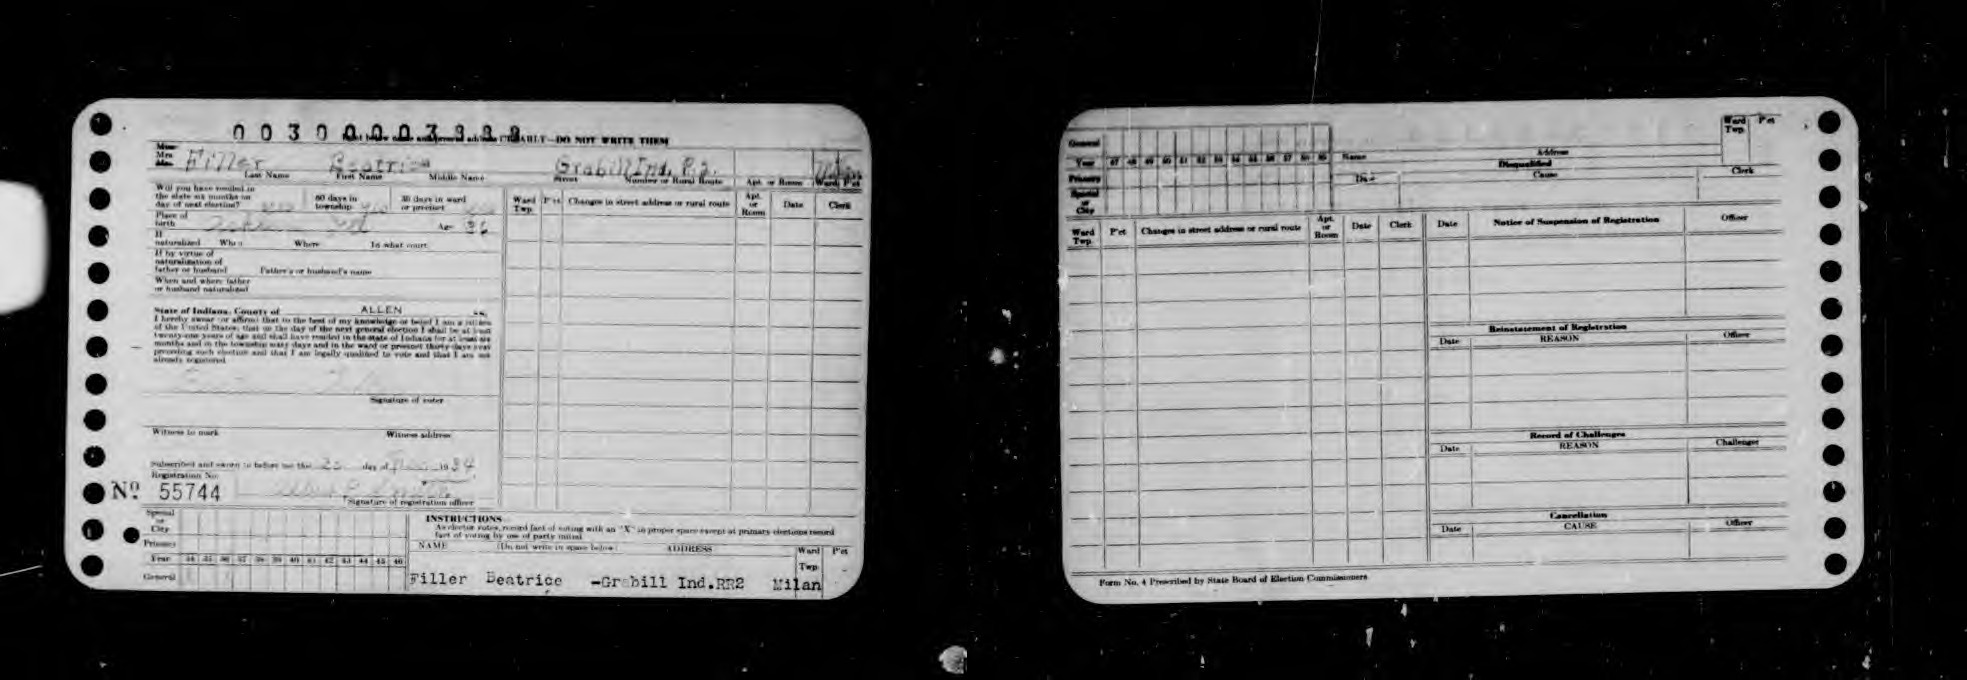 00300003999
ARLY—DO NOT WRITE THEM
Miss
Mrs.
Filler Beatrice Grabill Ind. R.2.
Last Name First Name Middle Name Street Number or Rural Route Apt. or Room Ward P'ct
Will you have resided in
the state six months on
day of next election? yes 60 days in
township yes 30 days in ward
or precinct yes
Place of
birth Age 36
If
naturalized When Where In what court
If by virtue of
naturalization of
father or husband Father's or husband's name
When and where father
or husband naturalized
State of Indiana, County of ALLEN ss.
I hereby swear (or affirm) that to the best of my knowledge or belief I am a citizen
of the United States; that on the day of the next general election I shall be at least
twenty-one years of age and shall have resided in the state of Indiana for at least six
months and in the township sixty days and in the ward or precinct thirty days next
preceding such election and that I am legally qualified to vote and that I am not
already registered.
Signature of voter
Witness to mark Witness address
Subscribed and sworn to before me the 23 day of 1934
Registration No.
Nº 55744
Signature of registration officer
Ward
Twp. P'ct. Changes in street address or rural route Apt.
or
Room Date Clerk
Special
or
City
Primary
Year 34 35 36 37 38 39 40 41 42 43 44 45 46
General
INSTRUCTIONS
As elector votes, record fact of voting with an "X" in proper space except at primary elections record
fact of voting by use of party initial
NAME (Do not write in space below) ADDRESS Ward
Twp. P'ct
Filler Beatrice -Grabill Ind.RR2 Milan
General
Year 47 48 49 50 51 52 53 54 55 56 57 58 59
Primary
Special
or
City
Name Address Ward
Twp. P'ct
Disqualified
Date Cause Clerk
Ward
Twp. P'ct Changes in street address or rural route Apt.
or
Room Date Clerk
Date Notice of Suspension of Registration Officer
Reinstatement of Registration
Date REASON Officer
Record of Challenges
Date REASON Challenger
Cancellation
Date CAUSE Officer
Form No. 4 Prescribed by State Board of Election Commissioners